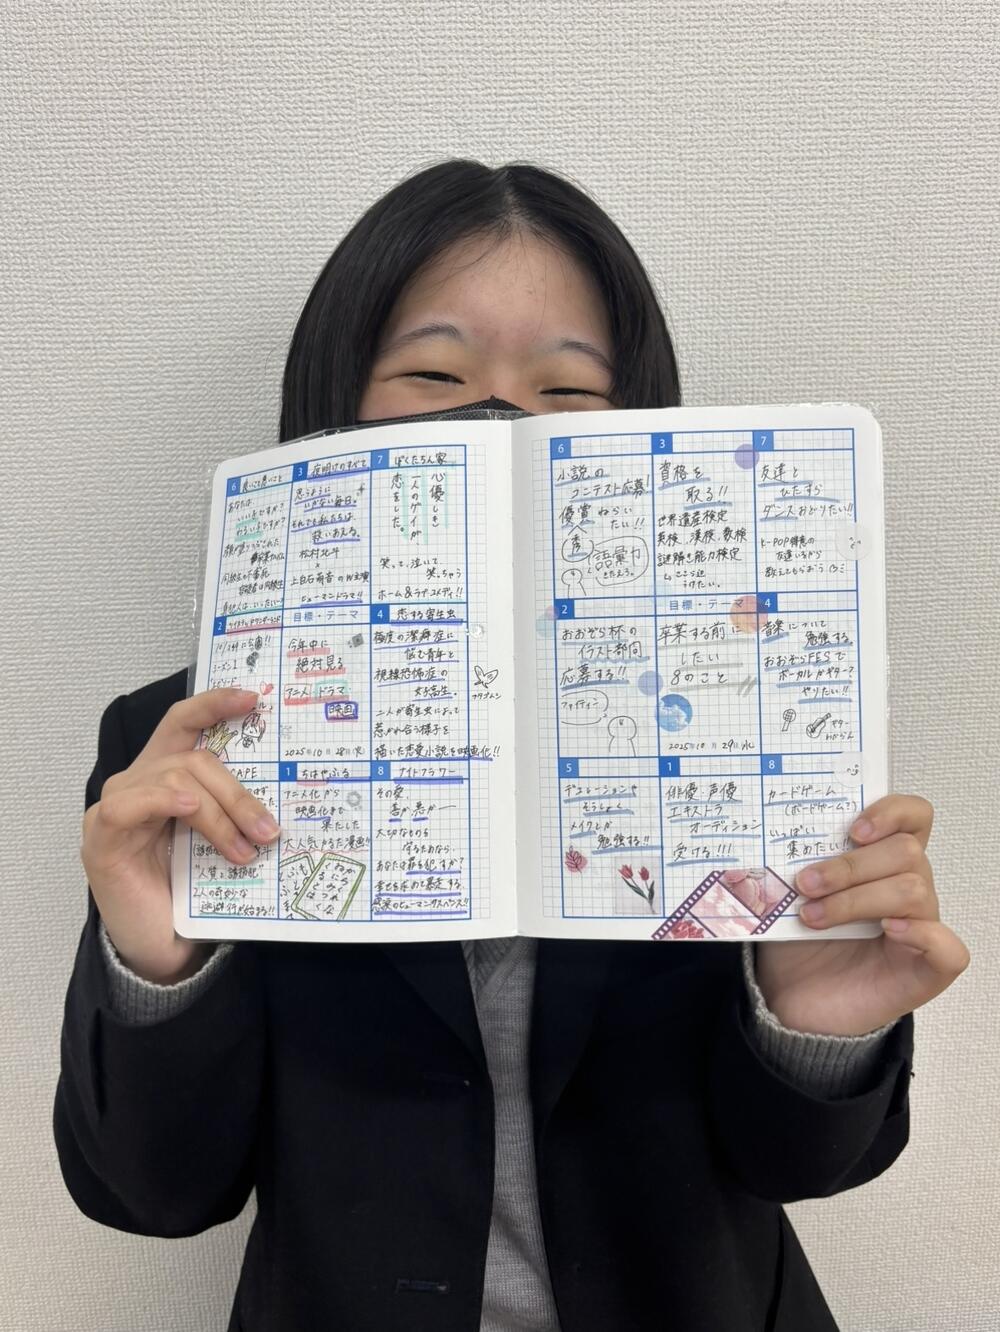 6 良いこと悪いこと
あなたは
いい子ですか?
わるい子ですか?
同級生の不審死
容疑者は同級生
真犯人は、いったい…?
3 夜明けのすべて
思うように
いかない毎日。
それでも私たちは、
救いあえる。
松村北斗
×
上白石萌音のW主演
ヒューマンドラマ!!
7 ぼくたちん家
心優しき
一人のゲイが
恋をした。
笑って、泣いて
笑っちゃう
ホーム&ラブコメディ!!
2
シーズン1
目標・テーマ
今年中に
絶対見る
アニメ ドラマ
映画
2025年10月28日(火)
4 恋する寄生虫
極度の潔癖症に
悩む青年と
視線恐怖症の
女子高生。
二人が寄生虫によって
惹かれ合う様子を
描いた恋愛小説を映画化!!
CAPE
"人質と誘拐犯"
2人の奇妙な
逃避行が始まる!!
1 ちはやふる
アニメ化から
映画化まで
果たした
大人気かるた漫画!!
8 ナイトフラワー
その愛、
善か悪か—
大切なもの
守るためなら、
あなたは罪を犯しますか?
幸せを求めて暴走する
衝撃のヒューマンサスペンス!!
6
小説の
コンテスト応募!
優賞ねらい
たい!!
秀
語彙力
きたえろ。
3
資格を
取る!!
世界遺産検定
英検、漢検、数検
謎解き能力検定
ここら辺
うけたい。
7
友達と
ひたすら
ダンスおどりたい!!
K-POP好きの
友達いるから
教えてもらおう
2
おおぞら杯の
イラスト部門
応募する!!
ファイティン!
目標・テーマ
卒業する前に
したい
8のこと
2025年10月29日水
4
音楽について
勉強する。
おおぞらFESで
ボーカルかギター?
やりたい!!
ギター
わからん
5
デコレーションや
そうしょく
メイクとか
勉強する!!
1
俳優、声優
エキストラ
オーディション
受ける!!!
8
カードゲーム
(ボードゲーム?)
いっぱい
集めたい!!